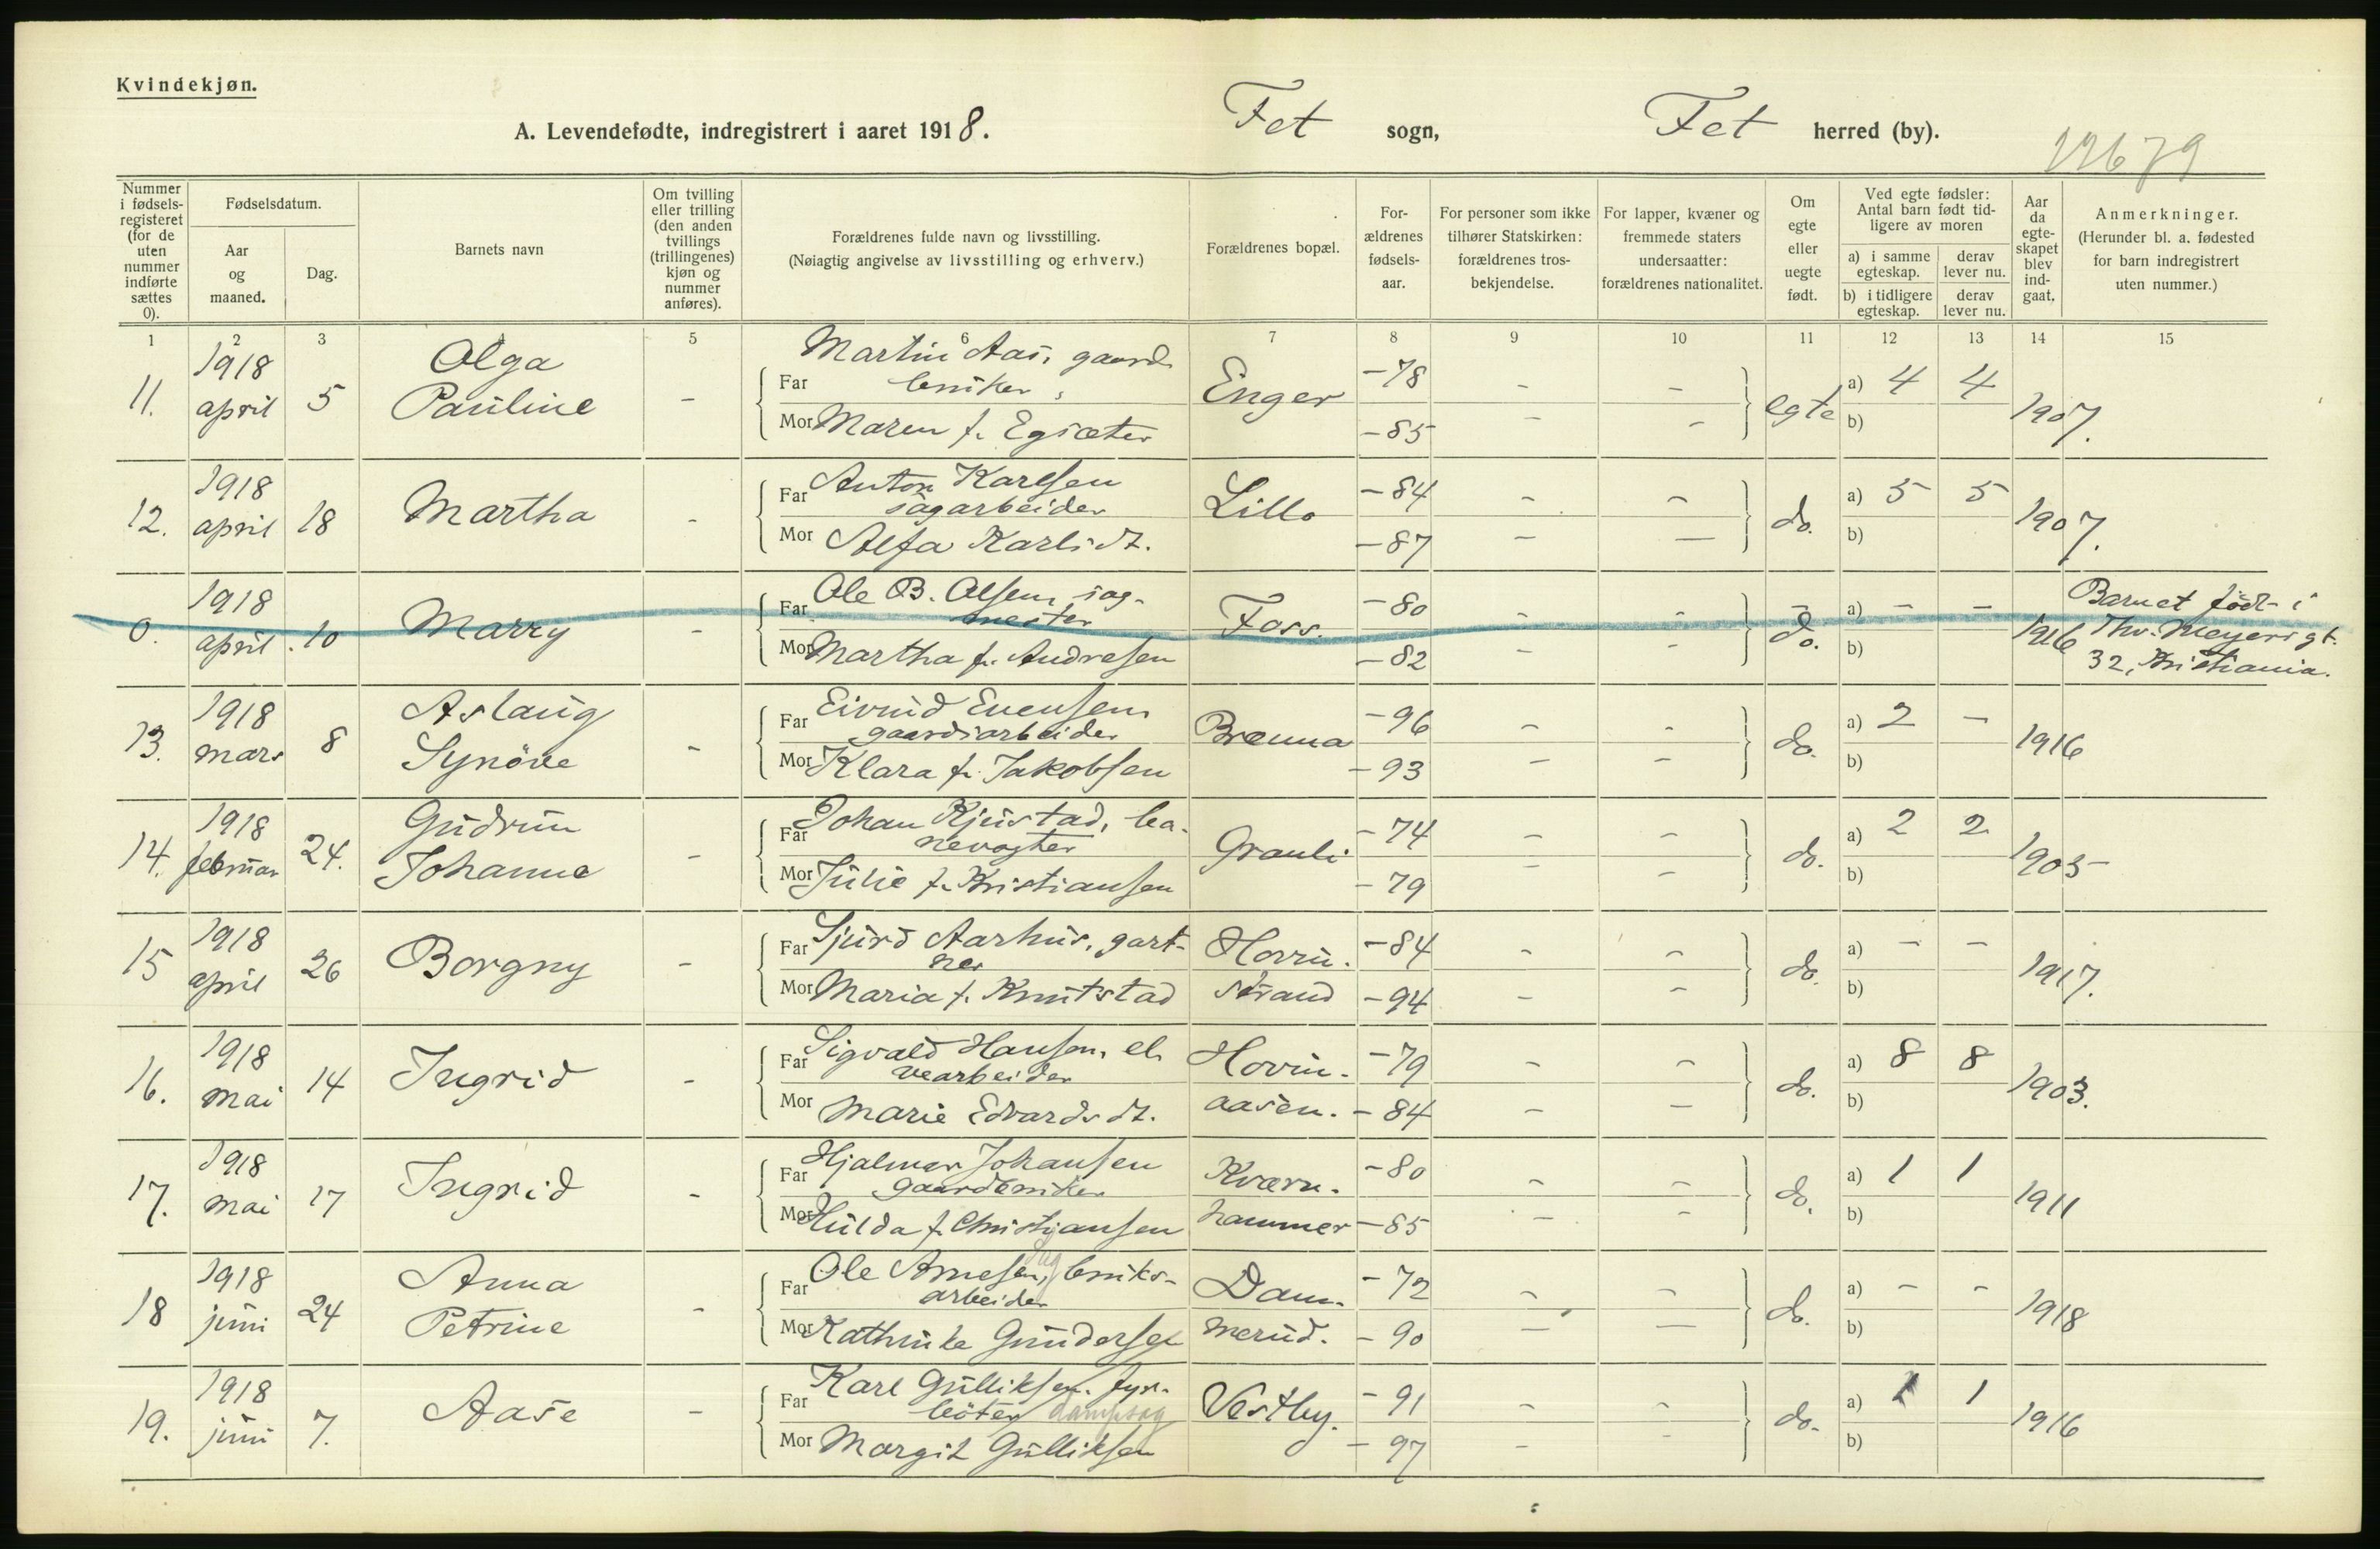 Kvindekjøn.
A. Levendefødte, indregistrert i aaret 1918. Fet sogn, Fet herred (by).
12679
Nummer i fødselsregisteret (for de uten nummer indførte sættes 0).
Fødselsdatum.
Aar og maaned.
Dag.
Barnets navn
Om tvilling eller trilling (den anden tvillings (trillingenes) kjøn og nummer anføres).
Forældrenes fulde navn og livsstilling.
(Nøiagtig angivelse av livsstilling og erhverv.)
Forældrenes bopæl.
Forældrenes fødselsaar.
For personer som ikke tilhører Statskirken: forældrenes trosbekjendelse.
For lapper, kvæner og fremmede staters undersaatter: forældrenes nationalitet.
Om egte eller uegte født.
Ved egte fødsler: Antal barn født tidligere av moren
a) i samme egteskap. derav lever nu.
b) i tidligere egteskap. derav lever nu.
Aar da egteskapet blev indgaat.
Anmerkninger.
(Herunder bl. a. fødested for barn indregistrert uten nummer.)
1 2 3 5 6 7 8 9 10 11 12 13 14 15
11. 1918 april 5 Olga Pauline - Far Martin Aas, gaardbruker, Enger -78 - - egte a) 4 4 1907.
Mor Maren f. Egsæter -85 - - b)
12. 1918 april 18 Martha - Far Anton Karlsen sagarbeider Lillo -84 - - do. a) 5 5 1907.
Mor Alfa Karlsdt. -87 - - b)
0. 1918 april 10 Marry - Far Ole B. Olsen, sagmester Foss. -80 - - do. a) - - 1916 Barnet født i Thv. Meyersgt. 32, Kristiania.
Mor Martha f. Andresen -82 - - b)
13. 1918 mars 8 Aslaug Synöve - Far Eivind Evensen gaardsarbeider Brænna -96 - - do. a) 2 - 1916
Mor Klara f. Jakobsen -93 - - b)
14. 1918 februar 24. Gudrun Johanne - Far Johan Kjustad, banevogter Grauli -74 - - do. a) 2 2 1905
Mor Julie f. Kristiansen -79 - - b)
15 1918 april 26 Borgny - Far Sjurd Aarhus, gartner Hovinstrand -84 - - do. a) - - 1917.
Mor Maria f. Knutstad -94 - - b)
16. 1918 mai 14 Ingrid - Far Sigvald Hansen, elvearbeider Hovinaasen. -79 - - do. a) 8 8 1903.
Mor Marie Edvardsdt. -84 - - b)
17. 1918 mai 17 Ingrid - Far Hjalmar Johansen gaardbruker Kværnhammer -80 - - do. a) 1 1 1911
Mor Hulda f. Christjansen -85 - - b)
18 1918 juni 24 Anna Petrine - Far Ole Arnesen, bruksarbeider Dammerud. -72 - - do. a) - - 1918
Mor Kathinka Gundersen -90 - - b)
19. 1918 juni 7. Aase - Far Karl Gulliksen, fyrböter dampsag Vestby. -91 - - do. a) 1 1 1916
Mor Margit Gulliksen -97 - - b)